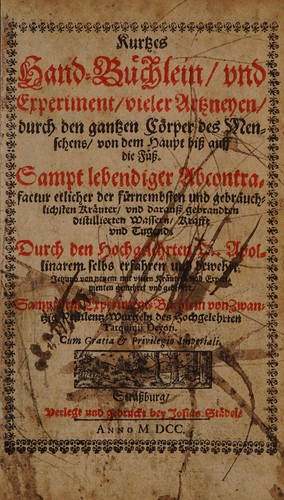 Kurtzes
Hand-Büchlein/ vnd
Experiment/ vieler Artzneyen/
durch den gantzen Cörper des Men-
schens/ von dem Haupt biß auff
die Füß.
Sampt lebendiger Abcontra-
factur etlicher der fürnembsten vnd gebräuch-
lichsten Kräuter/ vnd darauß gebrandten
distillierten Wassern/ Krafft
vnd Tugend.
Durch den Hochgelehrten Apol-
linarem selbs erfahren vnd bewehrt.
Jetzund von newem mit vielen Kräutern vnd Expe-
rimenten gemehret vnd gebessert.
Experiment-Büchlein von Zwan-
tzig Pestilentz-Wurtzeln des Hochgelehrten
Tarquinij
Cum Gratia & Privilegio Imperiali.
Straßburg/
Verlegt und gedruckt bey Josias Städel/
ANNO M DCC.